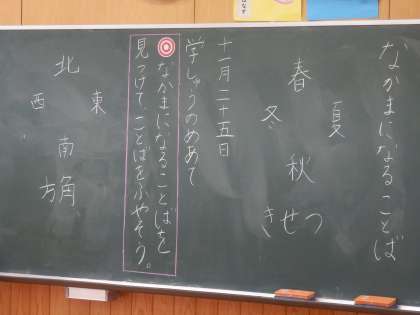 なかまになることば
春
夏
秋
冬
きせつ
十一月二十五日
学しゅうのめあて
なかまになることばを
見つけて、ことばをふやそう。
北
東
南
西
方角